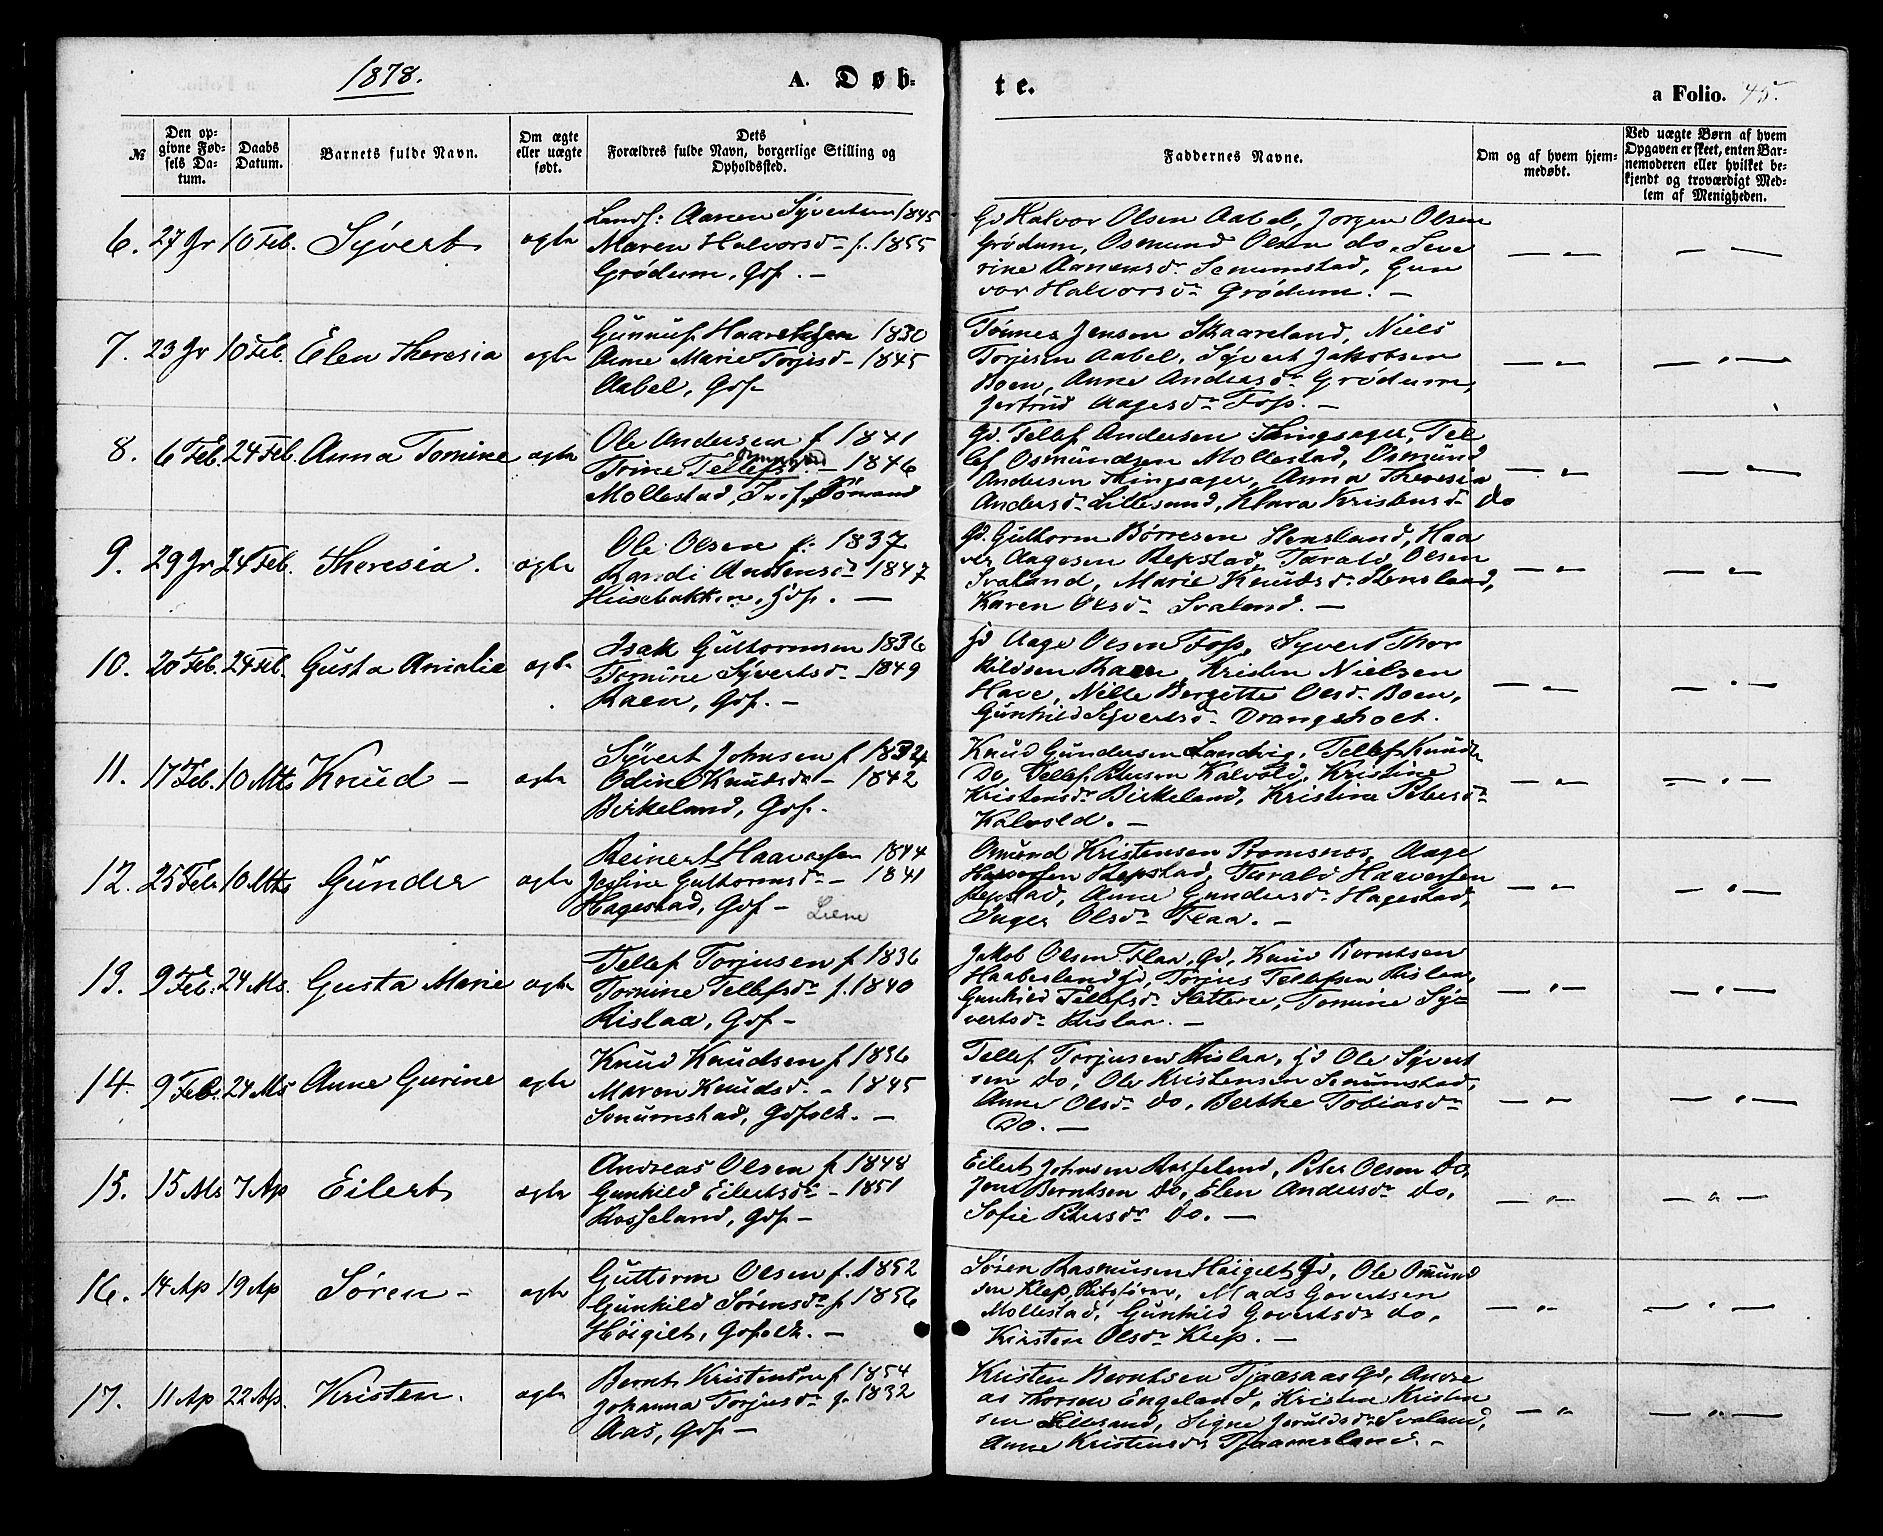 1878.
A. Døb-
te.
a Folio. 45.
№
Den op-
givne Fød-
sels Da-
tum.
Daabs
Datum.
Barnets fulde Navn.
Om ægte
eller uægte
født.
Dets
Forældres fulde Navn, borgerlige Stilling og
Opholdssted.
Faddernes Navne.
Om og af hvem hjem-
medøbt.
Ved uægte Børn af hvem
Opgaven er skeet, enten Bar-
nemoderen eller hvilket be-
kjendt og troværdigt Med-
lem af Menigheden.
6. 27 Jr 10 Feb. Syvert ægte
Aanen Syvertsen 1845
Maren Halvorsd. f. 1855
Grødum, Gdf. —
Gd Halvor Olsen Aabel, Jorgen Olsen
Grødum, Osmund Olsen do, Seve
rine Aanensd. Senumstad, Gun
vor Halvorsd. Grødum. —
7. 23 Jr 10 Feb. Elen Theresia ægte
Gunnuf Haavorsen 1830
Anne Marie Torjisd. 1845
Aabel, Gdf
Tønnes Jensen Skaareland, Niels
Torjisen Aabel, Syvert Jakobsen
Boen, Anne Andersd. Grødum,
Jertrud Aagesd. Foss. —
8. 6 Feb. 24 Feb. Anna Tomine ægte
Ole Andersen f. 1841
Trine Tellefsd. — 1846
Mollestad,
Gd. Tellef Andersen Thingsager, Tel
lef Osmundsen Mollestad, Osmund
Andersen Thingsager, Anna Theresia
Andersd. Lillesand, Klara Kristensd. do
9. 29 Jr 24 Feb. Theresia. ægte
Ole Olsen f. 1837
Randi Andersd. 1847
Husebakken, Gdf. —
Gd. Guttorm Børresen Hensland, Haa
ver Aagesen Repstad, Tarald Olsen
Svaland, Marie Knudsd. Stensland,
Karen Olsd. Svaland. —
10. 20 Feb. 24 Feb. Gusta Amalie ægte
Isak Guttormsen 1836
Tomine Syvertsd. — 1849
Raen, Gdf. —
Gd Aage Olsen Foss, Syvert Thor
kildsen Raen, Kristen Nielsen
Have, Nille Bergitte Olsd. Boen,
Gunhild Syvertsd. Drangsholt.
11. 17 Feb. 10 Mts Knud — ægte
Syvert Johnsen f. 1834
Odine Knudsd. — 1842
Birkeland, Gdf.
Knud Gundersen Landvig, Tellef Knuds.
do, Tellef Petersen Kalvold, Kristine
Kristensd. Birkeland, Kristine Petersd.
Kalvold. —
12. 25 Feb. 10 Mts Gunder ægte
Reinert Haaversen 1844
Jessine Guttormsd. — 1841
Hagestad, Gdf — Liene
Omund Kristensen Romsnes, Aage
Haaversen Repstad, Tarald Haaversen
Repstad, Anne Gundersd. Hagestad,
Inger Olsd. Flaa. —
13. 9 Feb. 24 Ms. Gusta Marie ægte
Tellef Torjusen f. 1836
Tomine Tellefsd. f. 1840
Rislaa, Gdf —
Jakob Olsen Flaa, Gd, Knud Berntsen
Haaberland Gd, Torjus Tellefsen Rislaa,
Gunhild Tellefsd. Slettene, Tomine Sy-
vertsd. Rislaa. —
14. 9 Feb. 24 Ms Anne Gurine ægte
Knud Knudsen f. 1836
Maren Knudsd. — 1845
Senumstad, Gdfolk. —
Tellef Torjusen Rislaa, Gd Ole Syvert
sen do, Ole Kristensen Senumstad,
Anne Olsd. do, Berthe Tobiasd.
do. —
15. 15 Ms 7 Ap Eilert ægte
Andreas Olsen f. 1848
Gunhild Eilertsd. — 1851
Rosseland, Gdf —
Eilert Johnsen Rosseland, Peter Olsen do,
Jens Berntsen do, Elen Andersd. do,
Sofie Petersd. do. —
16. 14 Ap 19 Ap Søren — ægte
Guttorm Olsen f. 1852
Gunhild Sørensd. f. 1856
Høigilt, Gdfolk. —
Søren Rasmusen Høigilt Gd, Ole Omund
sen Klep, Mads Govertsen
Mollestad, Gunhild Govertsd. do,
Kirsten Olsd. Klep. —
17. 11 Ap 22 Ap. Kristen. ægte
Bernt Kristensen f. 1854
Johanna Torjusd. f. 1832
Aas, Gdf —
Kristen Berntsen Tjaasaas Gd, Andre
as Thorsen Engeland, Kristen Kristen
sen Lillesand, Signe Jeruldsd. Svaland,
Anne Kristensd. Tjaameland. —